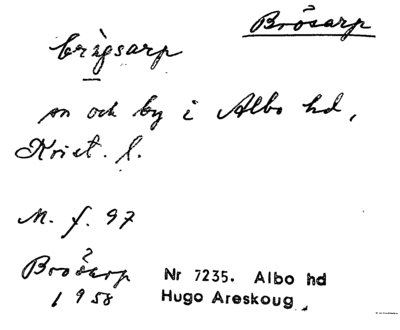 Brösarp
brågsarp
sn och by i Albo hd,
Krist. l.
M. f. 97
Brösarp
1958
Nr 7235. Albo hd
Hugo Areskoug